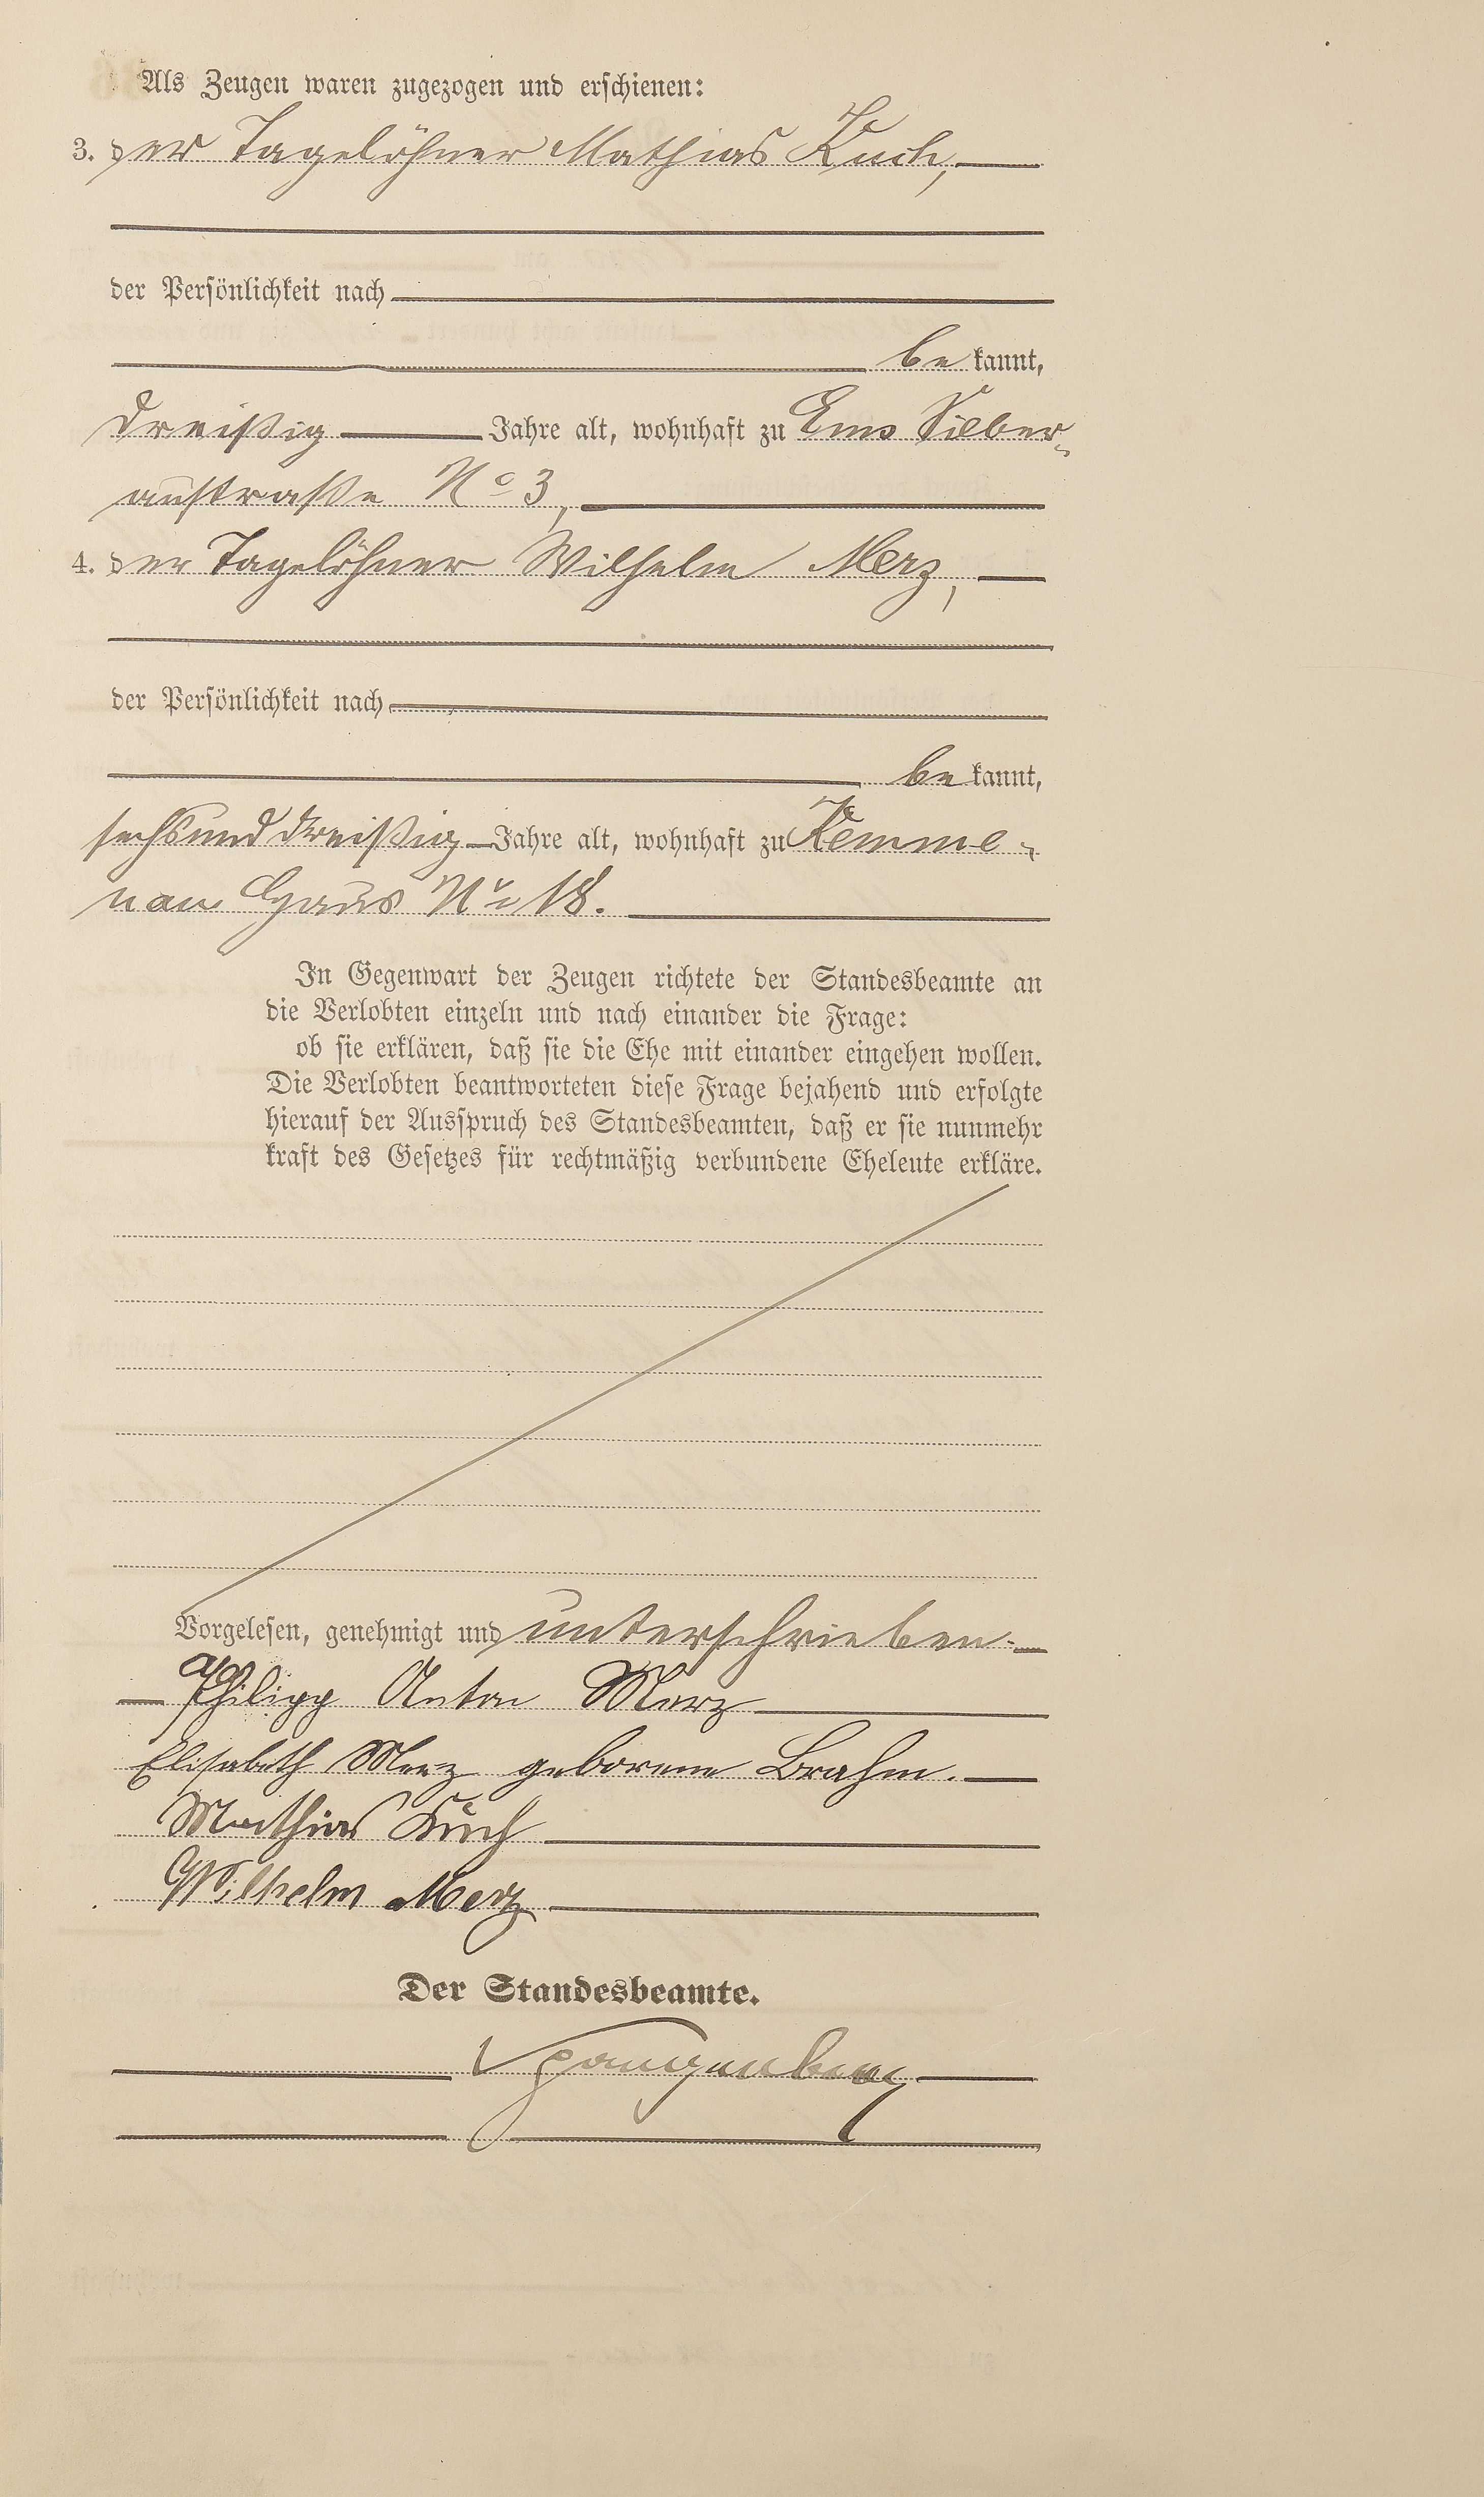 Als Zeugen waren zugezogen und erschienen:
3. der Tagelöhner Mathias Kuch,
der Persönlichkeit nach
be kannt,
dreißig Jahre alt, wohnhaft zu Ems Silber-
austraße No 3,
4. der Tagelöhner Wilhelm Merz,
der Persönlichkeit nach
be kannt,
sechsunddreißig Jahre alt, wohnhaft zu Kemme-
nau Haus No 18.
In Gegenwart der Zeugen richtete der Standesbeamte an
die Verlobten einzeln und nach einander die Frage:
ob sie erklären, daß sie die Ehe mit einander eingehen wollen.
Die Verlobten beantworteten diese Frage bejahend und erfolgte
hierauf der Ausspruch des Standesbeamten, daß er sie nunmehr
kraft des Gesetzes für rechtmäßig verbundene Eheleute erkläre.
Vorgelesen, genehmigt und unterschrieben.
Philipp Anton Merz
Elisabeth Merz geborene Brahm.
Mathias Kuch
Wilhelm Merz
Der Standesbeamte.
Spangenberg